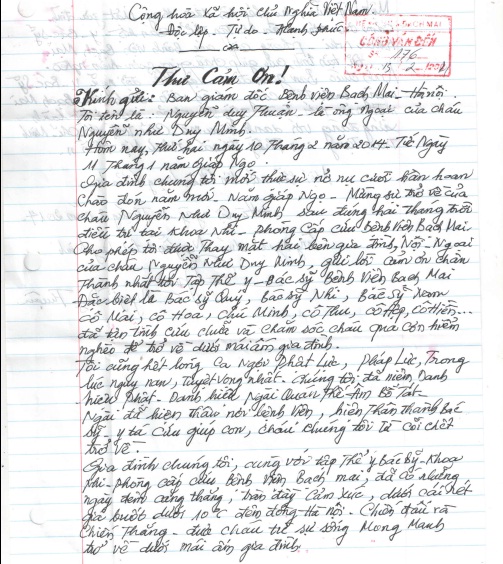 Cộng hòa xã hội chủ nghĩa Việt Nam.
Độc lập - Tự do - Hạnh phúc
CÔNG VĂN ĐẾN
Số 176
Thư Cảm Ơn!
Kính gửi: Ban giám đốc Bệnh Viện Bạch Mai - Hà nội.
Tôi tên là: Nguyễn duy Thuân - là ông Ngoại của cháu
Nguyễn như Duy Minh.
Hôm nay, Thứ hai ngày 10 Tháng 2 năm 2014. Tức Ngày
11 Tháng 1 năm Giáp Ngọ.
Gia đình chúng tôi mới thực sự nở nụ cười hân hoan
Chào đón năm mới - Năm giáp Ngọ - Mừng sự trở về của
cháu Nguyễn Như Duy Minh, sau đúng hai Tháng trời
điều trị tại Khoa Nhi - phòng Cấp cứu Bệnh Viện Bạch Mai
Cho phép tôi được Thay mặt hai bên gia đình, Nội - Ngoại
của cháu Nguyễn Như Duy Minh, gửi lời cảm ơn chân
Thành nhất tới Tập Thể y - Bác sỹ Bệnh Viện Bạch Mai
Đặc biệt là Bác sỹ Quý, Bác sỹ Nhi, Bác Sỹ Nam
Cô Mai, cô Hoa, Chú Minh, cô Thu, cô Hợp, cô Hiền...
đã tận tình cứu chữa và chăm sóc cháu qua cơn hiểm
nghèo để trở về dưới mái ấm gia đình.
Tôi cũng hết lòng Ca Ngợi Phật Lực, Pháp Lực, Trong
lúc nguy nan, tuyệt vọng nhất. Chúng tôi đã niệm Danh
hiệu Phật - Danh hiệu Ngài Quan Thế Âm Bồ Tát -
Ngài đã hiện thân nơi bệnh viện, hiện Thân thành Bác
sỹ - y tá Cứu giúp con, cháu chúng tôi từ cõi chết
trở về.
Gia đình chúng tôi, cùng với tập Thể y Bác Sỹ - Khoa
Nhi - phòng cấp cứu bệnh viện Bạch mai, đã có những
ngày đêm căng thẳng, tràn đầy Cảm Xúc, dưới cái rét
giá buốt dưới 10°c đêm đông Hà nội. Chiến đấu và
Chiến Thắng - đưa cháu từ sự sống Mong Manh
trở về dưới mái ấm gia đình.